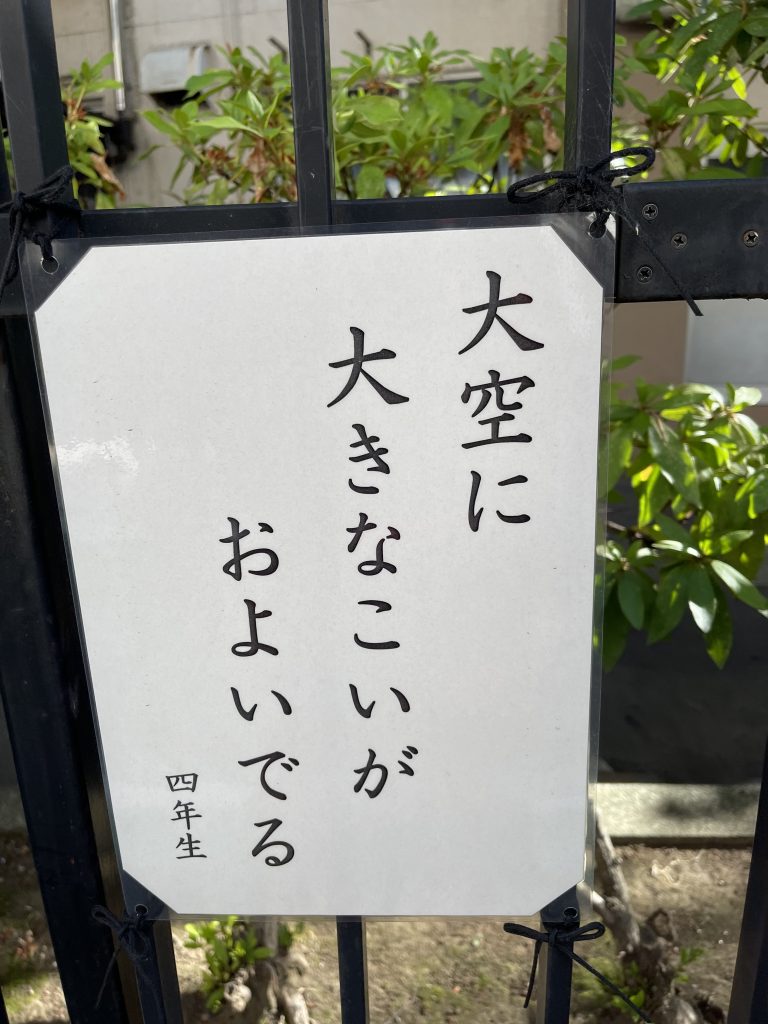 大空に
大きなこいが
およいでる
四年生